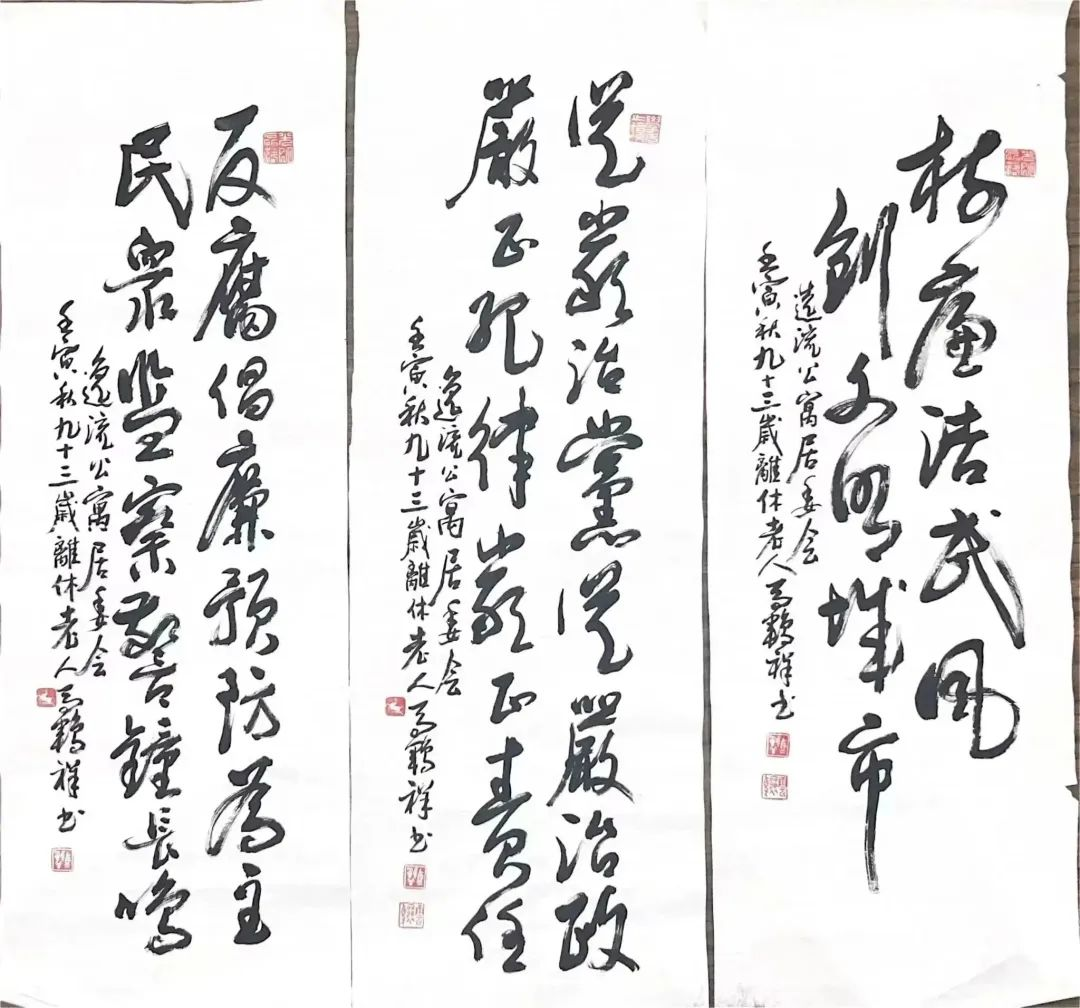 树廉洁风
创文明城市
逸流公寓居委会
壬寅秋九十三歲離休老人马鶴祥书
從嚴治黨從嚴治政
嚴正紀律嚴正責任
逸流公寓居委会
壬寅秋九十三歲離休老人马鶴祥书
反腐倡廉預防為主
民眾監察警鐘長鳴
逸流公寓居委会
壬寅秋九十三歲離休老人马鶴祥书